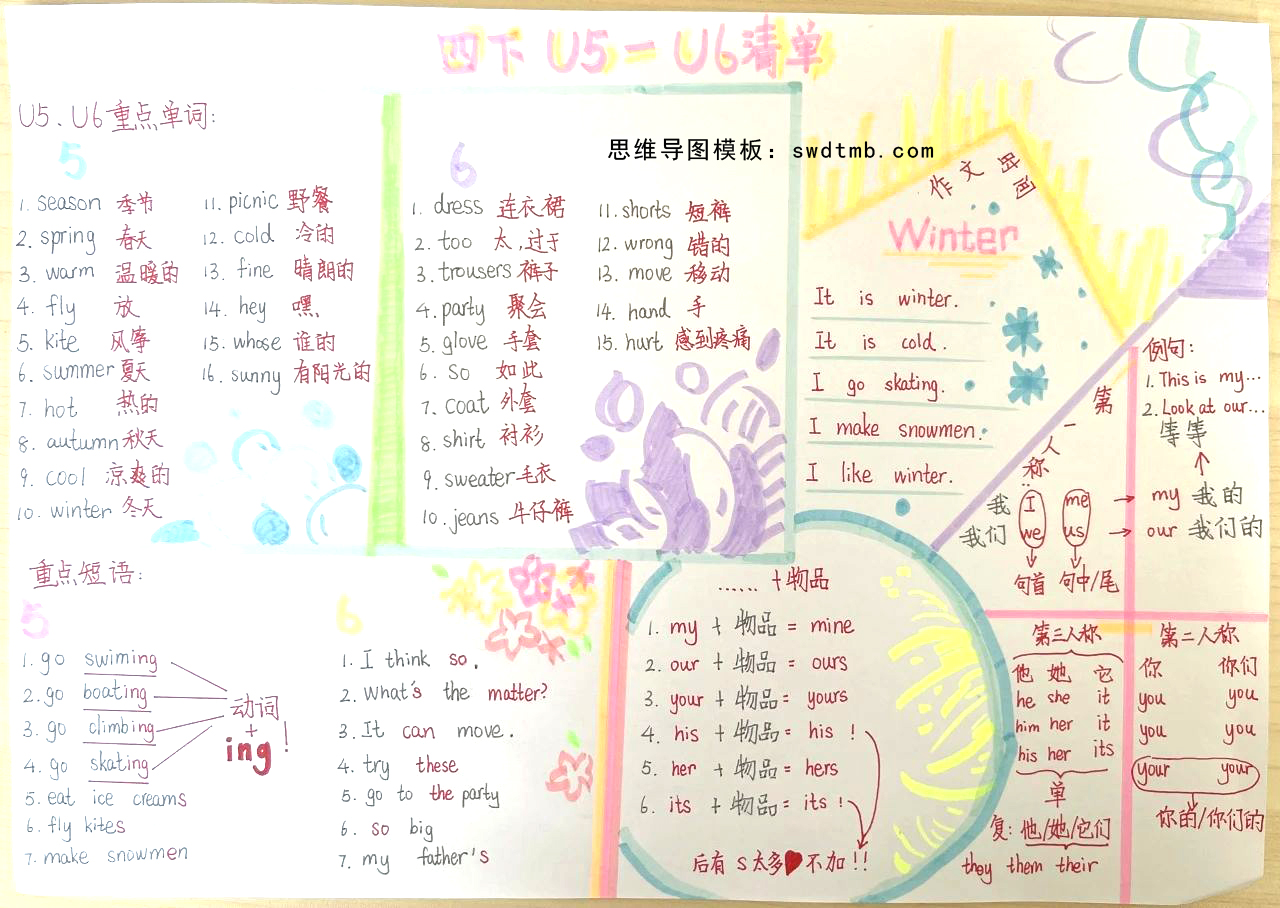 四下 U5-U6清单
思维导图模板：swdtmb.com
U5、U6重点单词:
5
1. season 季节
2. spring 春天
3. warm 温暖的
4. fly 放
5. kite 风筝
6. summer 夏天
7. hot 热的
8. autumn 秋天
9. cool 凉爽的
10. winter 冬天
11. picnic 野餐
12. cold 冷的
13. fine 晴朗的
14. hey 嘿,
15. whose 谁的
16. sunny 有阳光的
6
1. dress 连衣裙
2. too 太,过于
3. trousers 裤子
4. party 聚会
5. glove 手套
6. so 如此
7. coat 外套
8. shirt 衬衫
9. sweater 毛衣
10. jeans 牛仔裤
11. shorts 短裤
12. wrong 错的
13. move 移动
14. hand 手
15. hurt 感到疼痛
作文时间
Winter
It is winter.
It is cold.
I go skating.
I make snowmen.
I like winter.
重点短语:
5
1. go swiming
2. go boating
3. go climbing
4. go skating
动词
+
ing !
5. eat ice creams
6. fly kites
7. make snowmen
6
1. I think so.
2. What's the matter?
3. It can move.
4. try these
5. go to the party
6. so big
7. my father's
...... +物品
1. my + 物品 = mine
2. our + 物品 = ours
3. your + 物品 = yours
4. his + 物品 = his !
5. her + 物品 = hers
6. its + 物品 = its !
后有 s 太多 不加!!
第一人称:
我 I me → my 我的
我们 we us → our 我们的
句首 句中/尾
例句:
1. This is my...
2. Look at our...
等等
第三人称
他 她 它
he she it
him her it
his her its
单
复: 他/她/它们
they them their
第二人称
你 你们
you you
you you
your your
你的/你们的